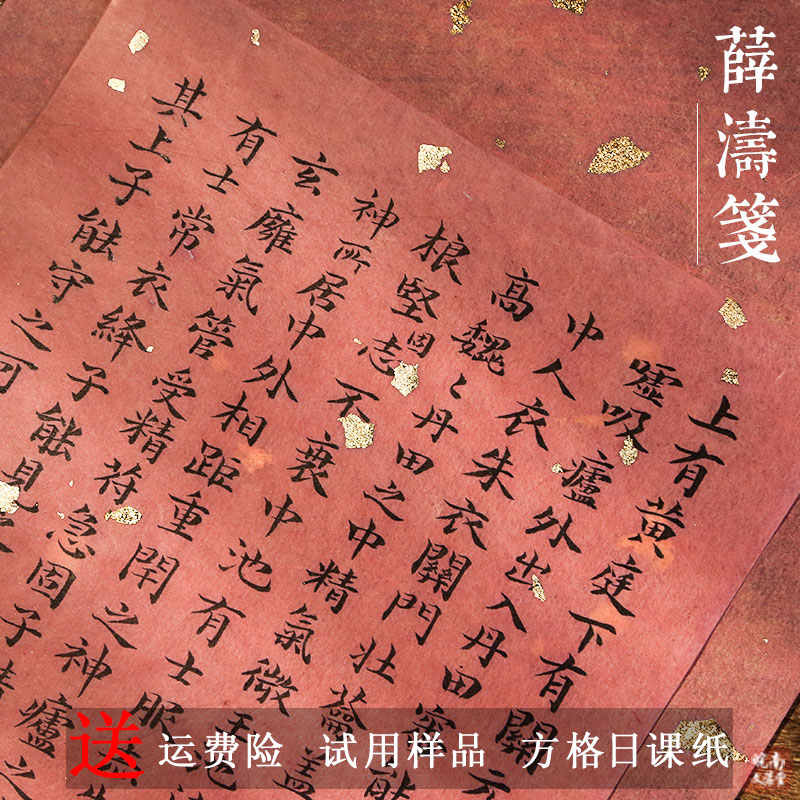 薛濤箋
上有黄庭下有關元
嘘吸廬外出入丹田審能
中人衣朱衣關門壯蘥蓋
高魏〻丹田之中精氣微
根堅固志不衰中池有士服
神所居中外相距重閈之神廬之
玄廱氣管受精苻急固子精
有士常衣絳子能見
其上子能守之可
送 运费险 试用样品 方格日课纸